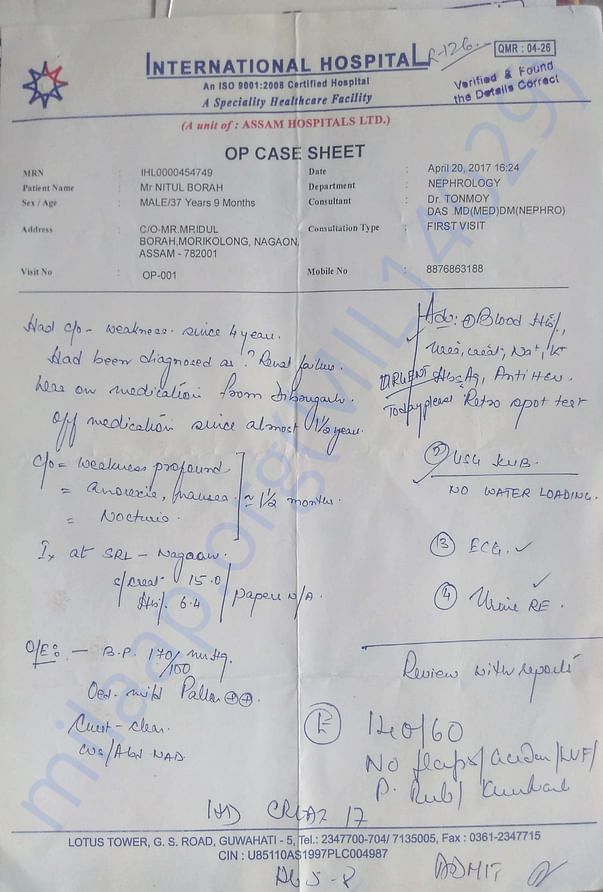 INTERNATIONAL HOSPITAL
R-126
QMR : 04-26
An ISO 9001:2008 Certified Hospital
A Speciality Healthcare Facility
Verified & Found
the Details Correct
(A unit of : ASSAM HOSPITALS LTD.)
OP CASE SHEET
MRN : IHL0000454749
Date : April 20, 2017 16:24
Patient Name : Mr NITUL BORAH
Department : NEPHROLOGY
Sex / Age : MALE/37 Years 9 Months
Consultant : Dr. TONMOY
DAS .MD(MED)DM(NEPHRO)
Address : C/O-MR.MRIDUL
BORAH,MORIKOLONG, NAGAON,
ASSAM - 782001
Consultation Type : FIRST VISIT
Visit No : OP-001
Mobile No : 8876863188
Had c/o - weakness since 4 year.
Had been diagnosed as ? Renal failure.
on medication from Dibrugarh.
Off medication since almost 1½ year.
c/o = Weakness profound
= Anorexia, nausea
= Nocturia
≈ 1½ months.
Ix at SRL - Nagaon.
S/creat 15.0
Hb% 6.4
papers N/A.
O/E: - B.P. 170/100 mmHg.
Oed. mild Pallor ++.
Chest - clear.
CVS/Abd NAD
Adv: 1 Blood Hb%,
Urea, creat, Na+, K+
URGENT HbsAg, Anti Hcv.
Today please Retro spot test
2 USG KUB.
NO WATER LOADING.
3 ECG. ✓
4 Urine RE.
Review with reports
E 140/60
No flaps/
P. Rub/
CREAT 17
LOTUS TOWER, G. S. ROAD, GUWAHATI - 5, Tel.: 2347700-704/ 7135005, Fax : 0361-2347715
CIN : U85110AS1997PLC004987
ADMIT
milaap.org